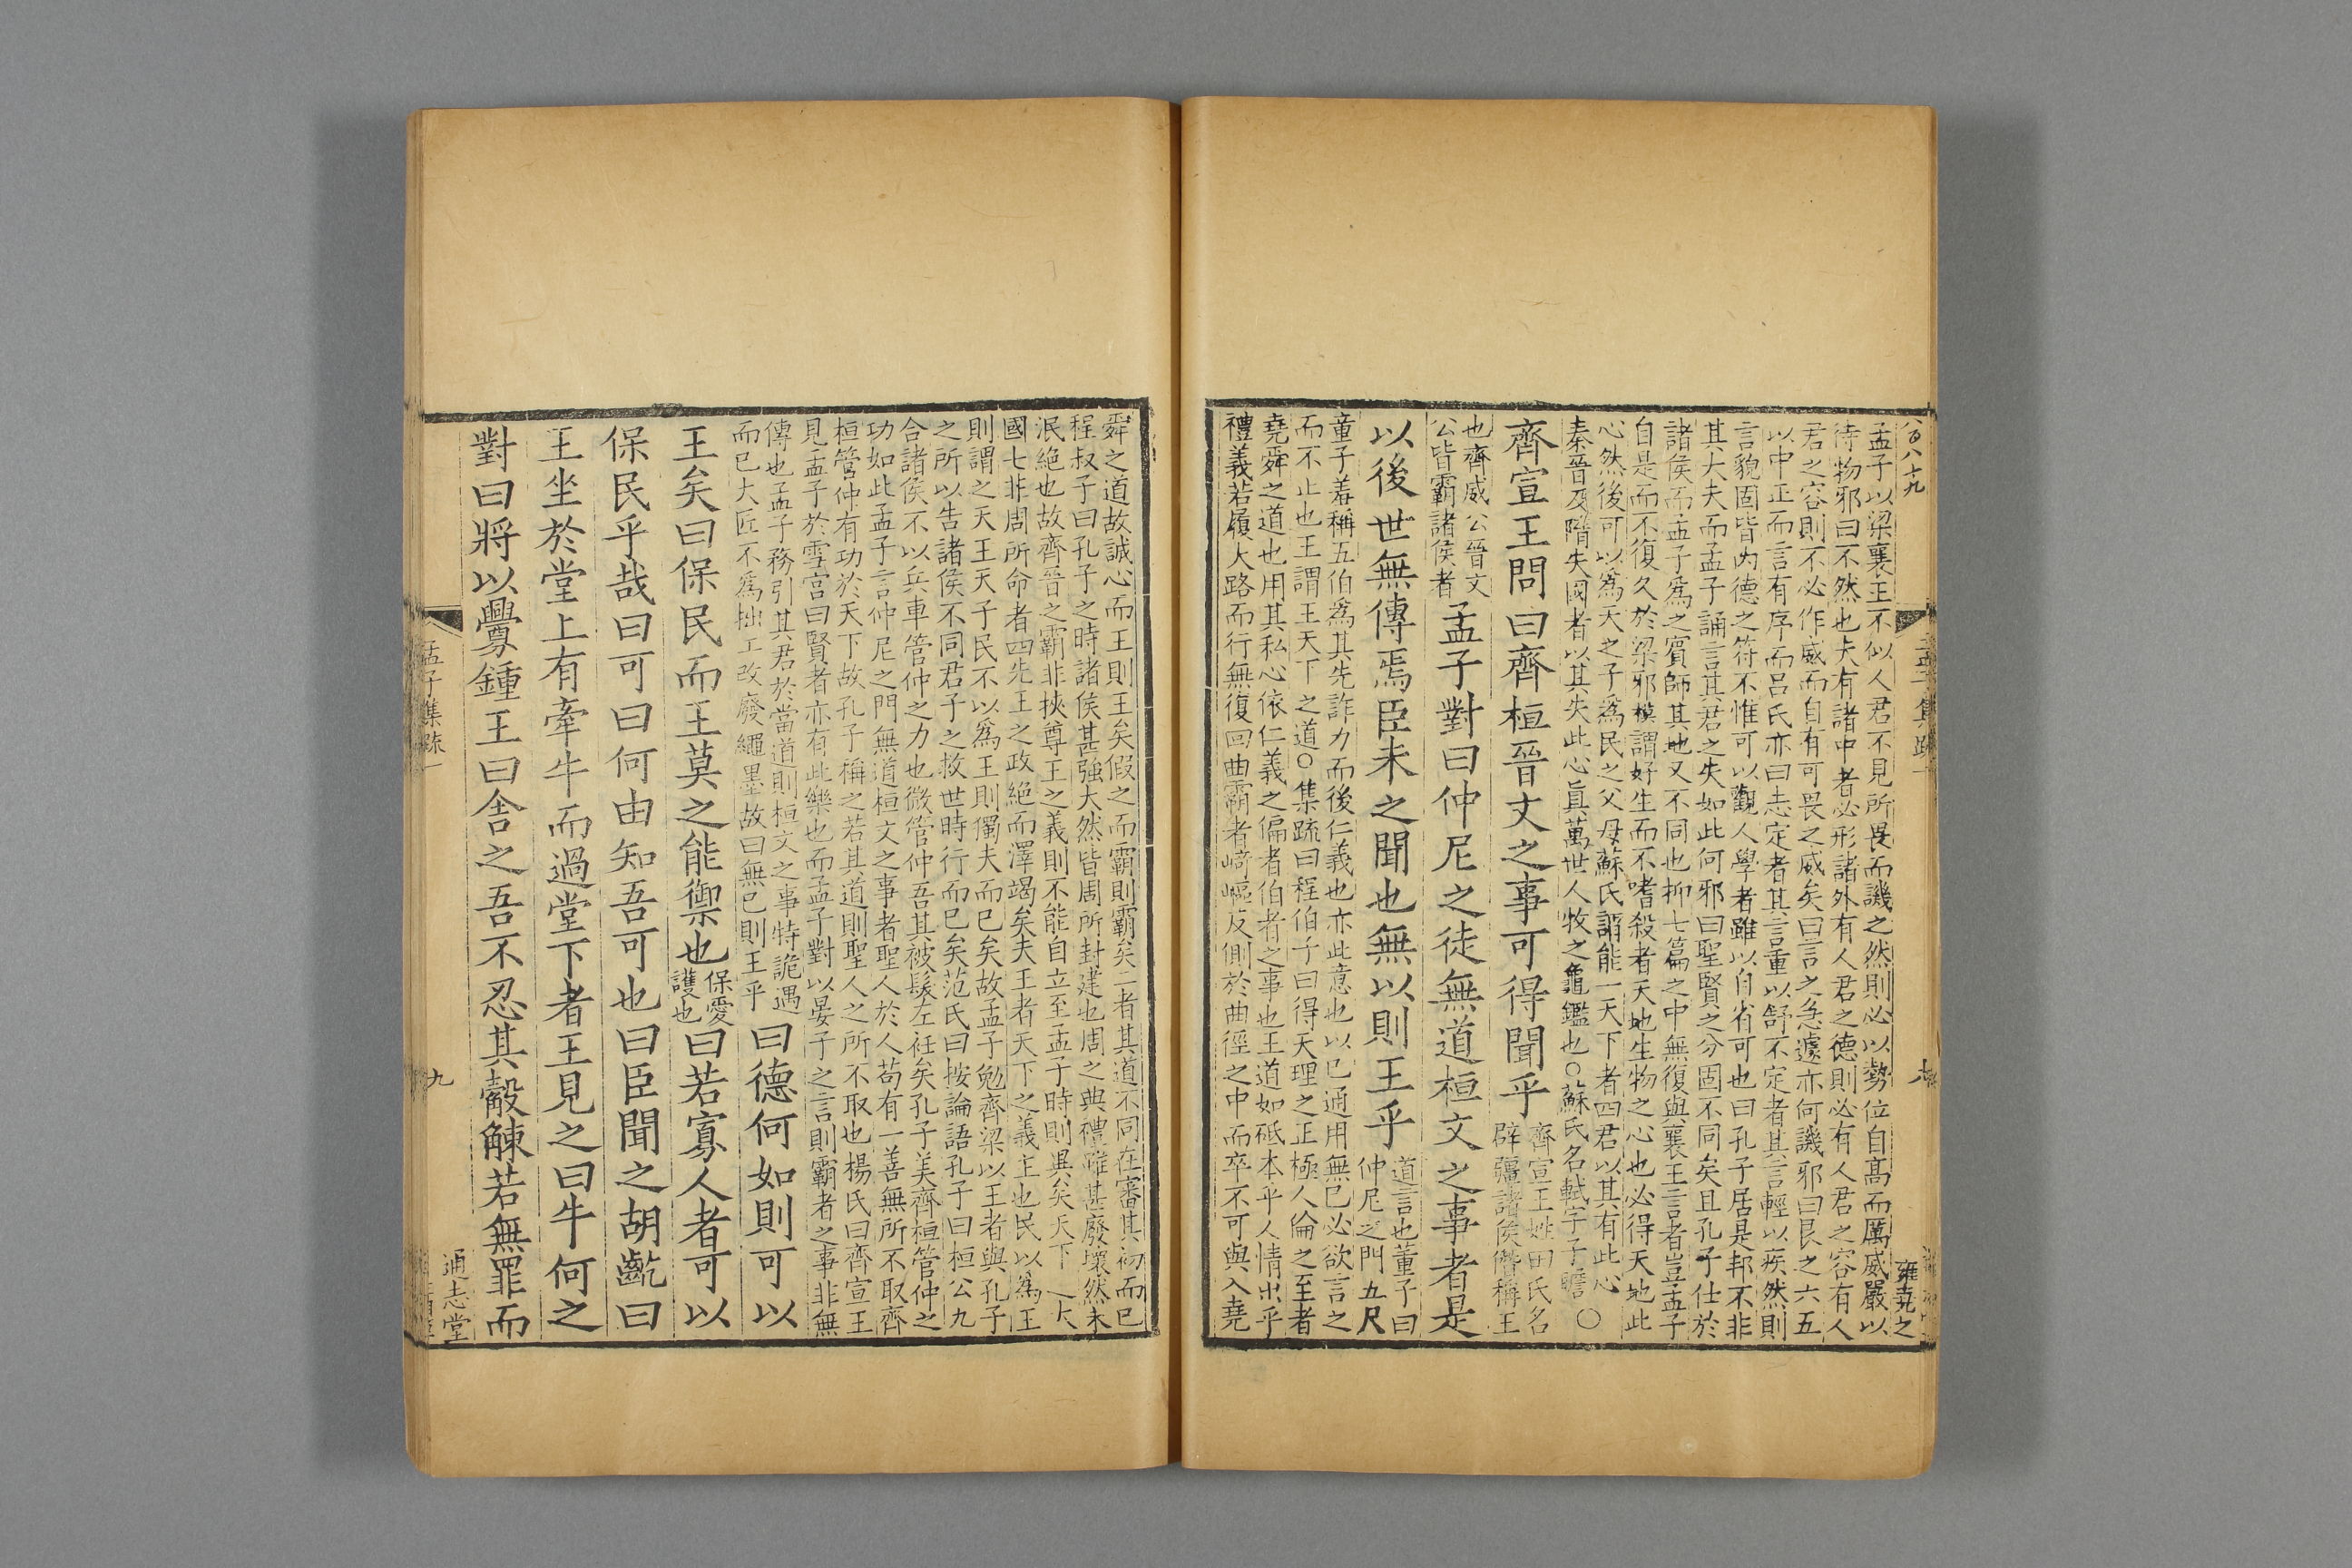 八百八十九
孟子以梁襄王不似人君不見所畏而譏之然則必以勢位自高而厲威嚴以
待物邪曰不然也夫有諸中者必形諸外有人君之德則必有人君之容有人
君之容則不必作威而自有可畏之威矣曰言之急遽亦何譏邪曰艮之六五
以中正而言有序而呂氏亦曰志定者其言重以舒不定者其言輕以疾然則
言貌固皆內德之符不惟可以觀人學者雖以自省可也曰孔子居是邦不非
其大夫而孟子誦言其君之失如此何邪曰聖賢之分固不同矣且孔子仕於
諸侯而孟子為之賓師其地又不同也抑七篇之中無復與襄王言者豈孟子
自是而不復久於梁邪模謂好生而不嗜殺者天地生物之心也必得天地此
心然後可以為天之子為民之父母蘇氏謂能一天下者四君以其有此心
秦晉及隋失國者以其失此心眞萬世人牧之龜鑑也○蘇氏名軾字子瞻○
齊宣王問曰齊桓晉文之事可得聞乎齊宣王姓田氏名
辟彊諸侯僭稱王
也齊威公晉文
公皆霸諸侯者孟子對曰仲尼之徒無道桓文之事者是
以後世無傳焉臣未之聞也無以則王乎道言也董子曰
仲尼之門五尺
童子羞稱五伯為其先詐力而後仁義也亦此意也以已通用無已必欲言之
而不止也王謂王天下之道○集疏曰程伯子曰得天理之正極人倫之至者
堯舜之道也用其私心依仁義之偏者伯者之事也王道如砥本乎人情出乎
禮義若履大路而行無復回曲霸者崎嶇反側於曲徑之中而卒不可與入堯
雍堯之
舜之道故誠心而王則王矣假之而霸則霸矣二者其道不同在審其初而已
程叔子曰孔子之時諸侯甚強大然皆周所封建也周之典禮雖甚廢壞然未
泯絕也故齊晉之霸非挾尊王之義則不能自立至孟子時則異矣天下之大
國七非周所命者四先王之政絕而澤竭矣夫王者天下之義主也民以為王
則謂之天王天子民不以為王則獨夫而已矣故孟子勉齊梁以王者與孔子
之所以告諸侯不同君子之救世時行而已矣范氏曰按論語孔子曰桓公九
合諸侯不以兵車管仲之力也微管仲吾其被髮左衽矣孔子美齊桓管仲之
功如此孟子言仲尼之門無道桓文之事者聖人於人苟有一善無所不取齊
桓管仲有功於天下故孔子稱之若其道則聖人之所不取也楊氏曰齊宣王
見孟子於雪宮曰賢者亦有此樂也而孟子對以晏子之言則霸者之事非無
傳也孟子務引其君於當道則桓文之事特詭遇
而已大匠不為拙工改廢繩墨故曰無已則王乎曰德何如則可以
王矣曰保民而王莫之能禦也保愛
護也曰若寡人者可以
保民乎哉曰可曰何由知吾可也曰臣聞之胡齕曰
王坐於堂上有牽牛而過堂下者王見之曰牛何之
對曰將以釁鍾王曰舍之吾不忍其觳觫若無罪而
孟子集疏一
九
通志堂